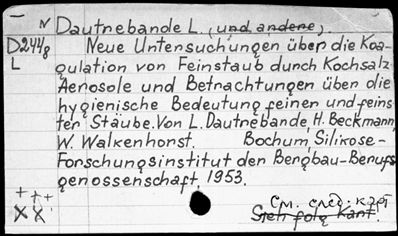 N Dautrebande L. (und andere).
D244g Neue Untersuchungen über die Koa-
L gulation von Feinstaub durch Kochsalz
Aerosole und Betrachtungen über die
hygienische Bedeutung feiner und feins
ter Stäube. Von L. Dautrebande, H. Beckmann,
W. Walkenhorst. Bochum, Silikose-
Forschungsinstitut den Bergbau-Berufs
genossenschaft, 1953.
См. след. карт
Sieh folg Kart.